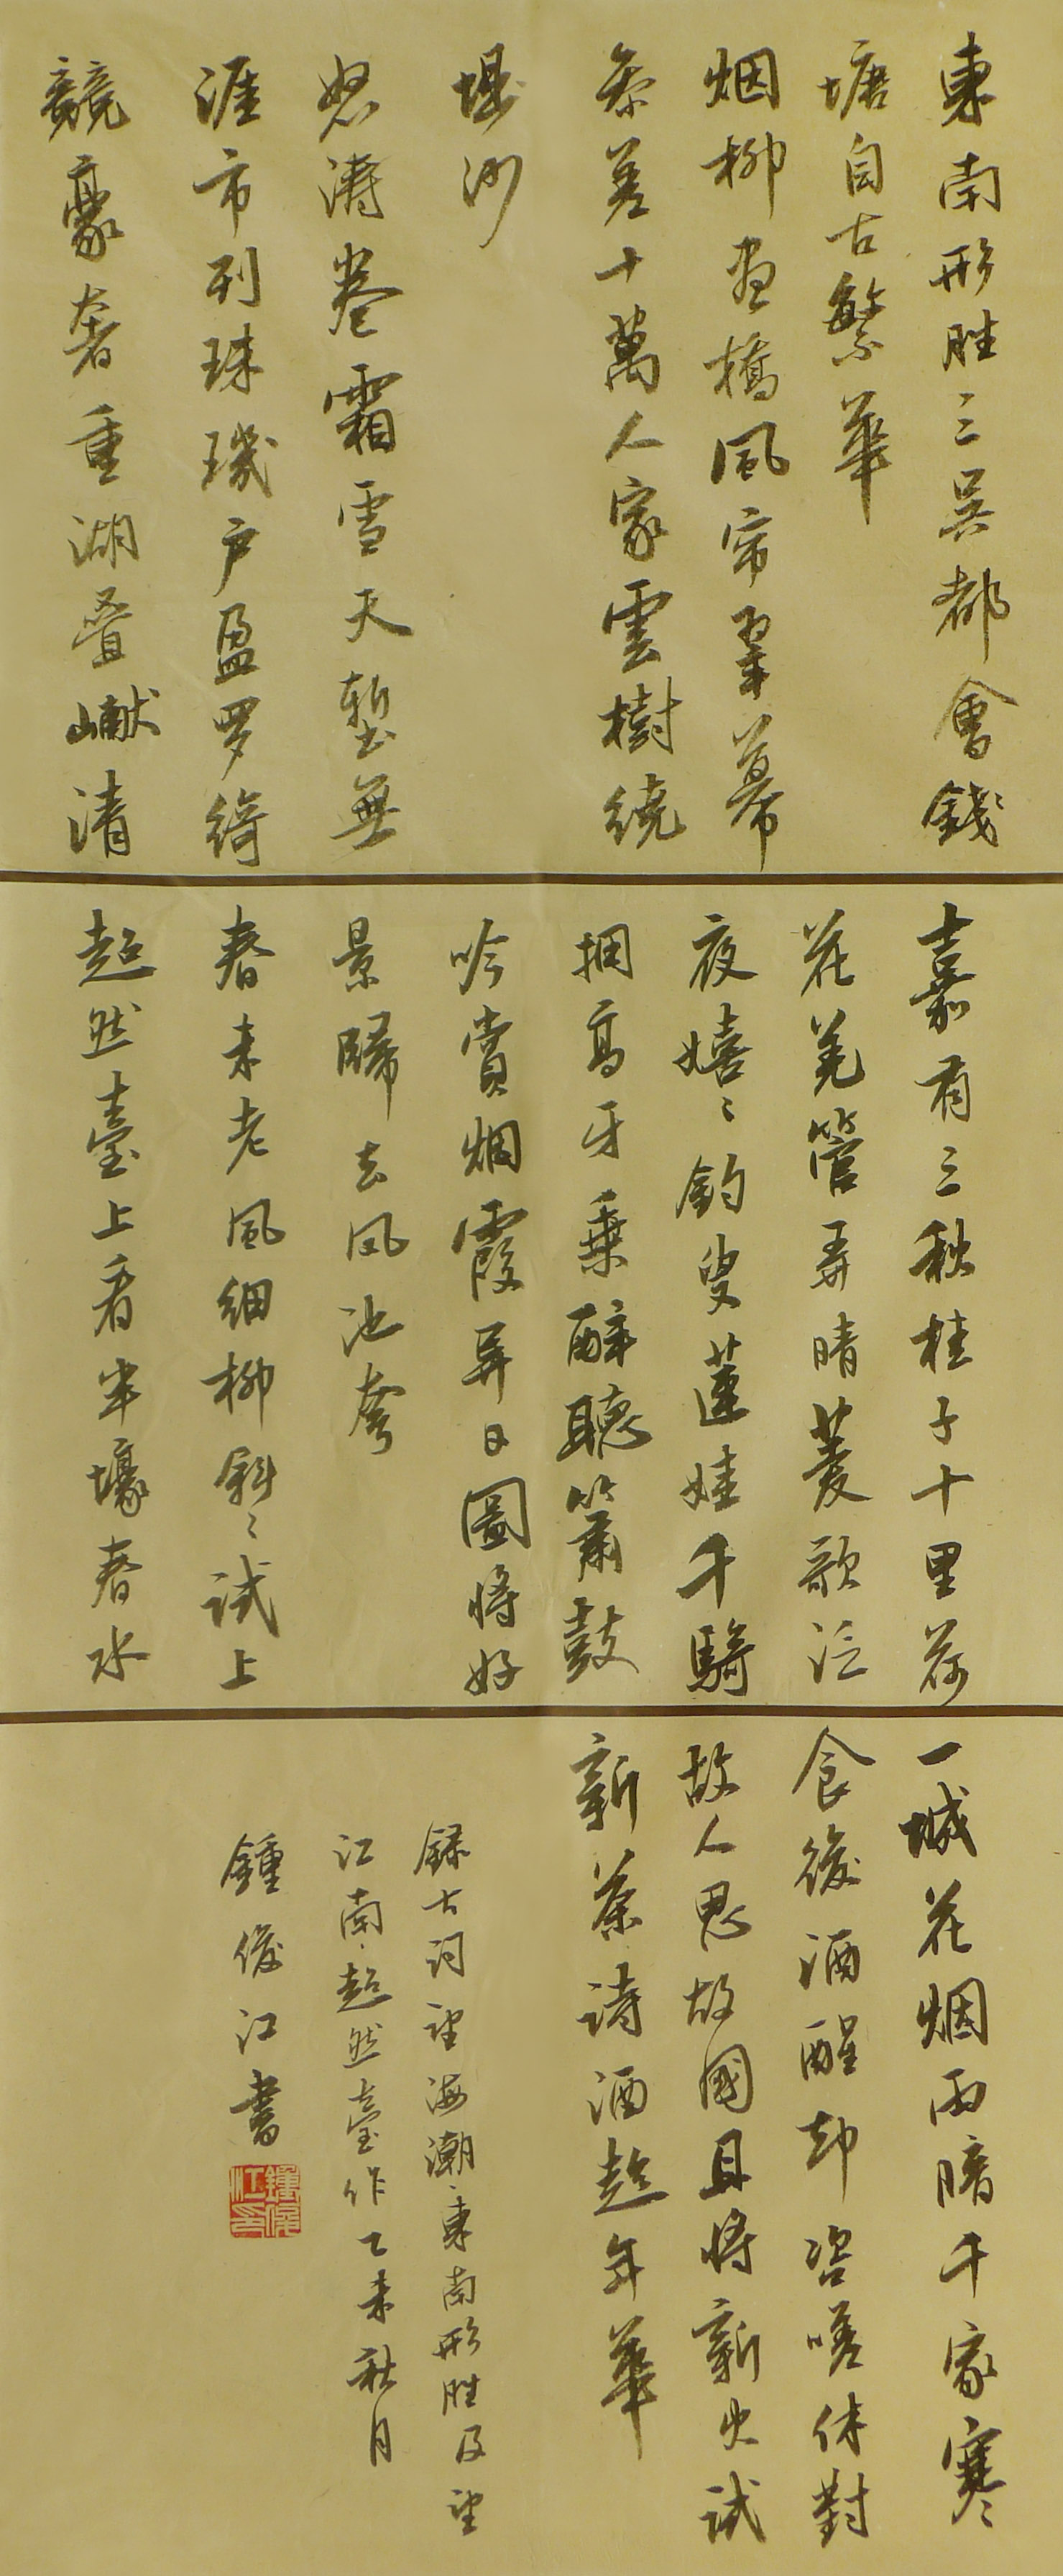 東南形胜三吴都會錢
塘自古繁華
烟柳画橋風帘翠幕
参差十萬人家雲樹绕
堤沙
怒涛卷霜雪天塹無
涯市列珠璣户盈罗綺
競豪奢重湖叠巘清
嘉有三秋桂子十里荷
花羌管弄晴菱歌泛
夜嬉〻釣叟蓮娃千騎
拥高牙乗醉聽箫鼓
吟赏烟霞异日圖将好
景歸去凤池夸
春未老風细柳斜〻试上
超然臺上看半壕春水
一城花烟雨暗千家寒〻
食後酒醒却咨嗟休對
故人思故國且将新火试
新茶诗酒趁年華
録古词望海潮·東南形胜及望
江南·超然臺作乙未秋月
鍾俊江書
鍾俊江印